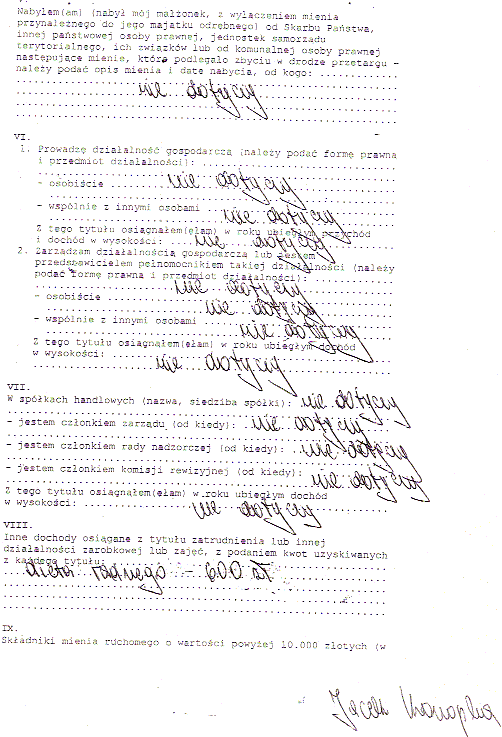 Nabyłem(am) (nabył mój małżonek, z wyłączeniem mienia
przynależnego do jego majątku odrębnego) od Skarbu Państwa,
innej państwowej osoby prawnej, jednostek samorządu
terytorialnego, ich związków lub od komunalnej osoby prawnej
następujące mienie, które podlegało zbyciu w drodze przetargu -
należy podać opis mienia i datę nabycia, od kogo: ....................
nie dotyczy
VI.
1. Prowadzę działalność gospodarczą (należy podać formę prawną
i przedmiot działalności): ....................
nie dotyczy
- osobiście ....................
nie dotyczy
- wspólnie z innymi osobami .................... nie dotyczy
Z tego tytułu osiągnąłem(ęłam) w roku ubiegłym przychód
i dochód w wysokości: .......... nie dotyczy
2. Zarządzam działalnością gospodarczą lub jestem
przedstawicielem pełnomocnikiem takiej działalności (należy
podać formę prawną i przedmiot działalności): ..........
nie dotyczy
- osobiście .................... nie dotyczy
- wspólnie z innymi osobami .......... nie dotyczy
Z tego tytułu osiągnąłem(ęłam) w roku ubiegłym dochód
w wysokości: .......... nie dotyczy
VII.
W spółkach handlowych (nazwa, siedziba spółki): nie dotyczy
- jestem członkiem zarządu (od kiedy): .. nie dotyczy
- jestem członkiem rady nadzorczej (od kiedy): .. nie dotyczy
- jestem członkiem komisji rewizyjnej (od kiedy): .. nie dotyczy
Z tego tytułu osiągnąłem(ęłam) w roku ubiegłym dochód
w wysokości: .......... nie dotyczy
VIII.
Inne dochody osiągane z tytułu zatrudnienia lub innej
działalności zarobkowej lub zajęć, z podaniem kwot uzyskiwanych
z każdego tytułu: ....................
dieta radnego - 600 zł
IX.
Składniki mienia ruchomego o wartości powyżej 10.000 złotych (w
Jacek Konopka